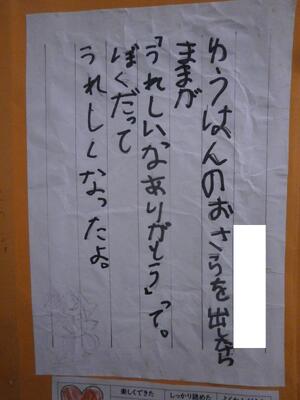 ゆうはんのおさらを出したら
ままが
「うれしいなありがとう」って。
ぼくだって
うれしくなったよ。
楽しくできた
しっかり読めた